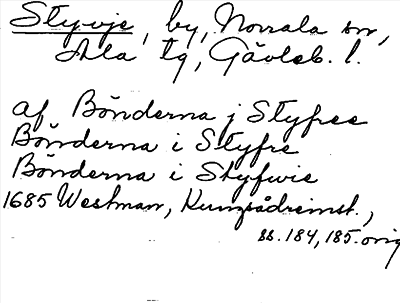 Styvje, by, Norrala sn,
Ala tg, Gävleb. l.
af Bönderna j Styfree
Bönderna i Styfre
Bönderna i Styfwie
1685 Westman, Kungsådreinst.,
ss. 184, 185. orig